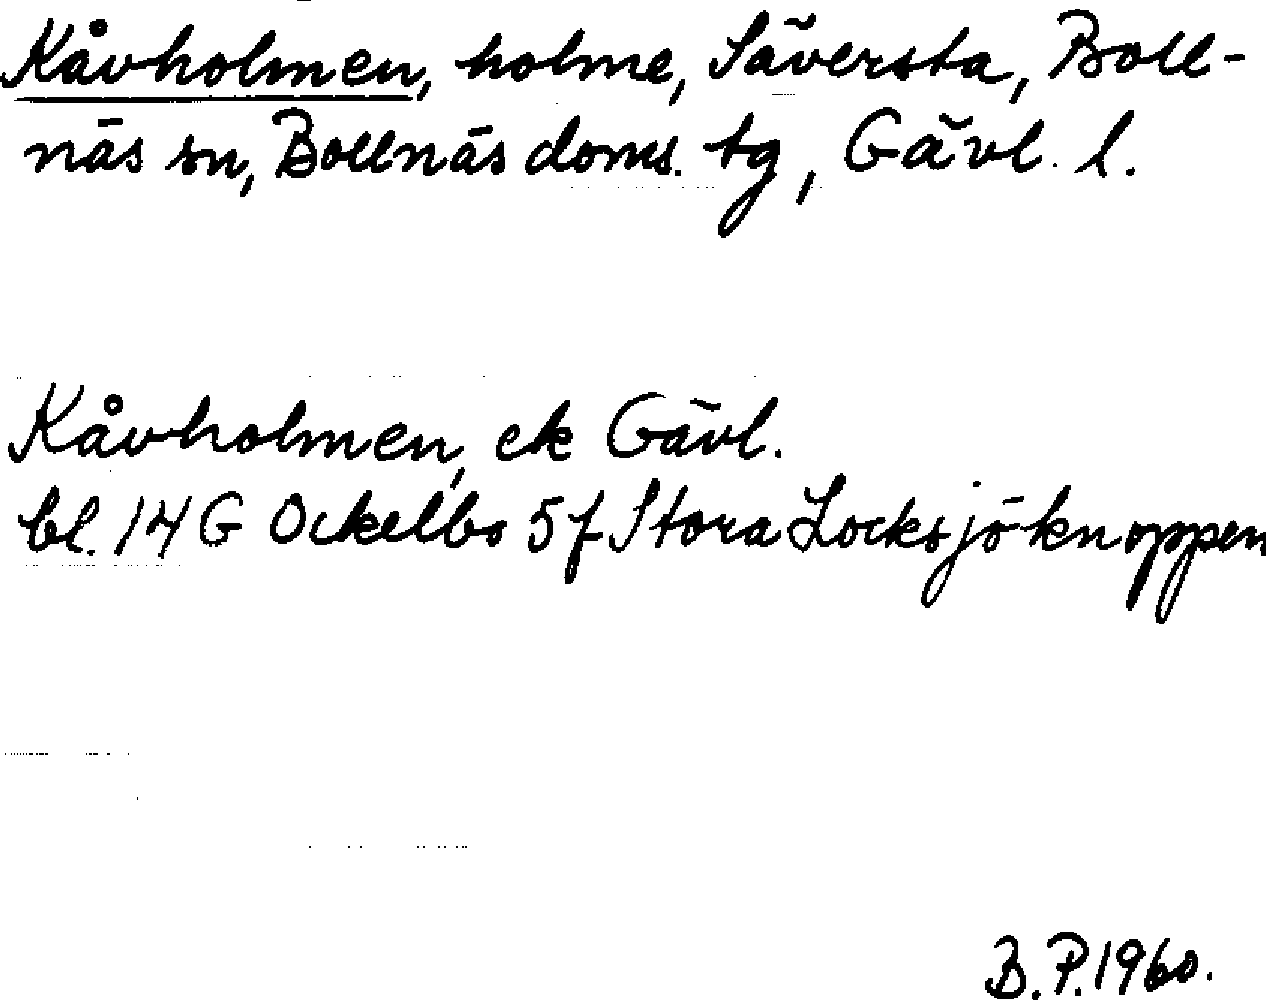 Kåvholmen, holme, Säversta, Boll-
näs sn, Bollnäs doms. tg, Gävl. l.
Kåvholmen, ek Gävl.
bl. 14 G Ockelbo 5f Stora Locksjöknoppen
B.P. 1960.